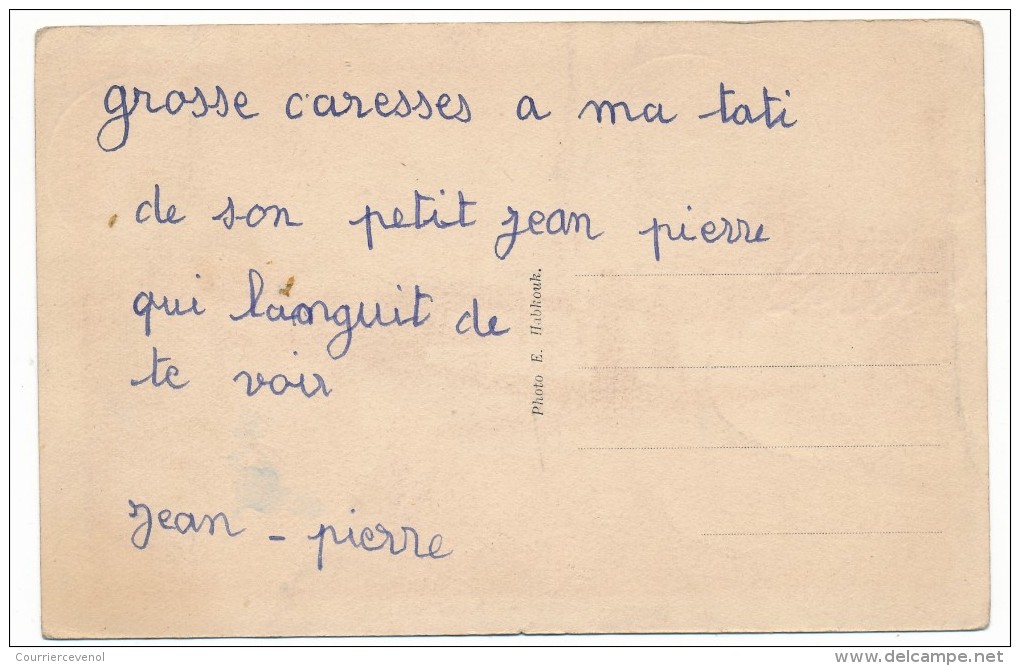 grosse caresses a ma tati
de son petit jean pierre
qui languit de
te voir
jean - pierre
Photo E. Habkouk.
Courriercevenol
delcampe.net